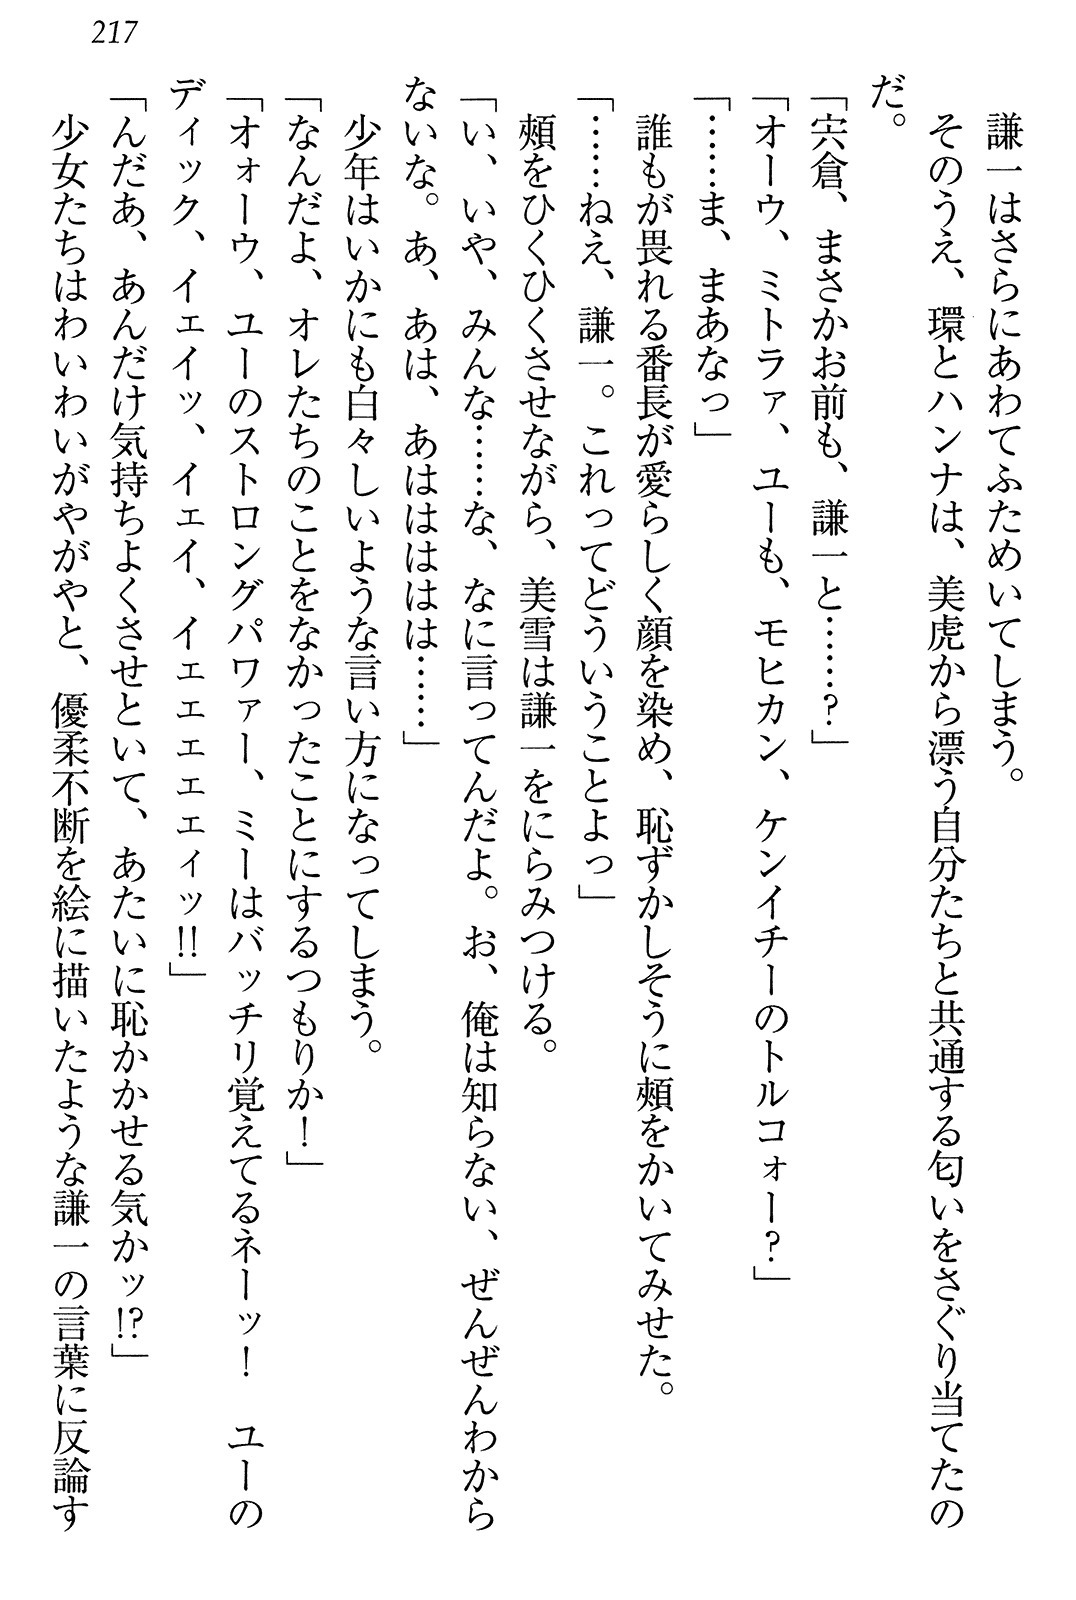 217
謙一はさらにあわてふためいてしまう。
そのうえ、環とハンナは、美虎から漂う自分たちと共通する匂いをさぐり当てたの
だ。
「宍倉、まさかお前も、謙一と……？」
「オーウ、ミトラァ、ユーも、モヒカン、ケンイチーのトルコォー？」
「……ま、まあなっ」
誰もが畏れる番長が愛らしく顔を染め、恥ずかしそうに頰をかいてみせた。
「……ねえ、謙一。これってどういうことよっ」
頰をひくひくさせながら、美雪は謙一をにらみつける。
「い、いや、みんな……な、なに言ってんだよ。お、俺は知らない、ぜんぜんわから
ないな。あ、あは、あはははははは……」
少年はいかにも白々しいような言い方になってしまう。
「なんだよ、オレたちのことをなかったことにするつもりか！」
「オォーウ、ユーのストロングパワァー、ミーはバッチリ覚えてるネーッ！　ユーの
ディック、イェイッ、イェイ、イェェェェィッ!!」
「んだあ、あんだけ気持ちよくさせといて、あたいに恥かかせる気かッ!?」
少女たちはわいわいがやがやと、優柔不断を絵に描いたような謙一の言葉に反論す